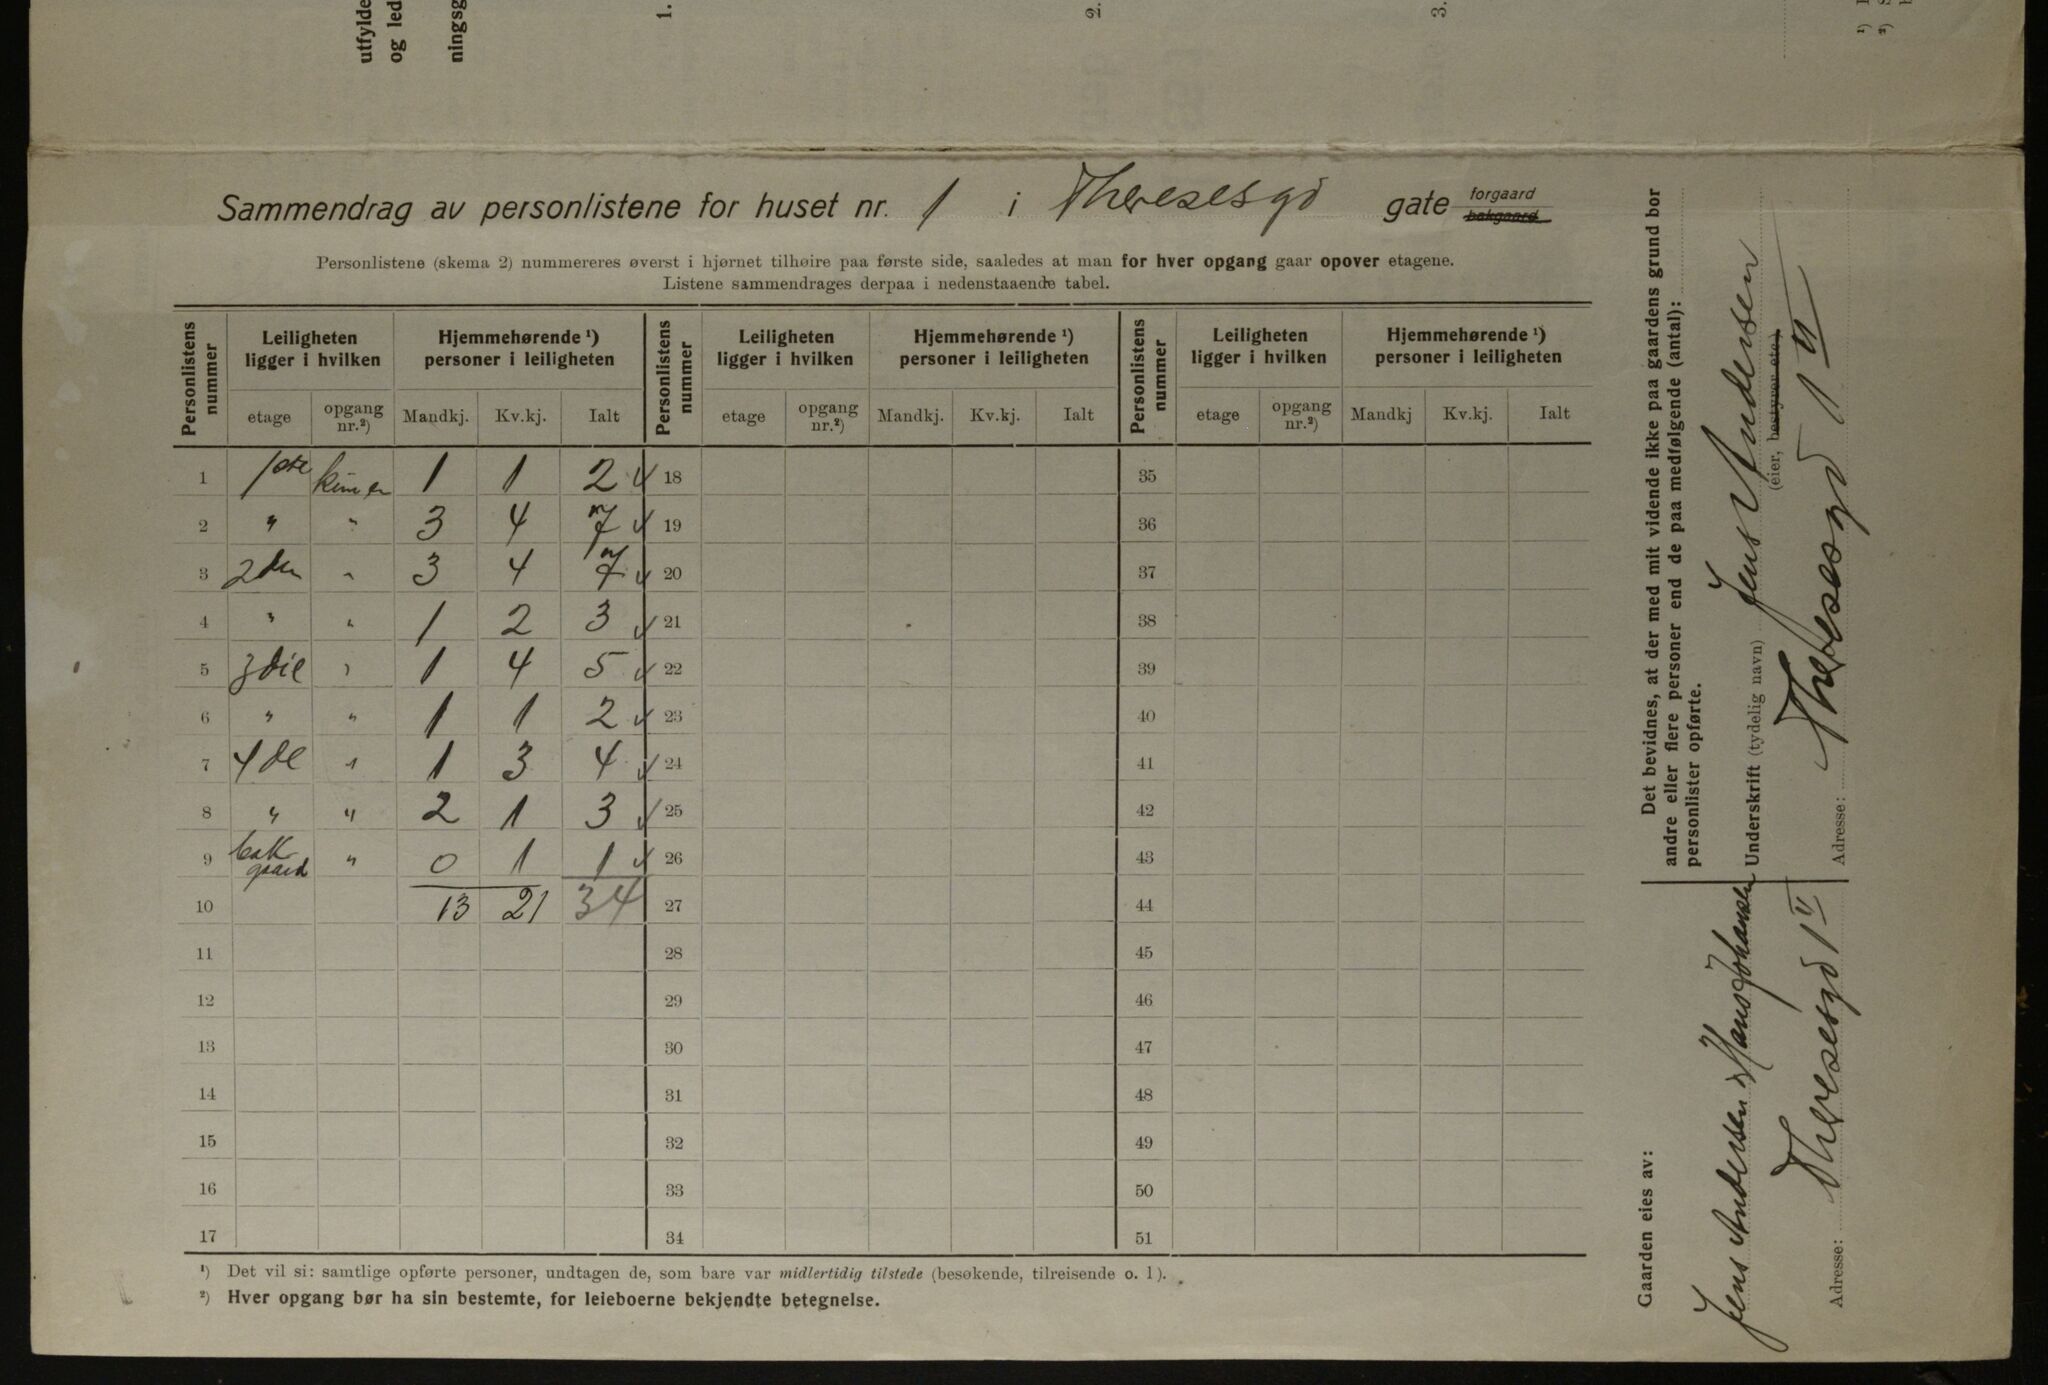 utfylde
og led
ningsg
1.
2.
3.
Sammendrag av personlistene for huset nr. 1 i Theresesgd gate forgaard
bakgaard
Personlistene (skema 2) nummereres øverst i hjørnet tilhøire paa første side, saaledes at man for hver opgang gaar opover etagene.
Listene sammendrages derpaa i nedenstaaende tabel.
Personlistens nummer | Leiligheten ligger i hvilken | Hjemmehørende ¹) personer i leiligheten | Personlistens nummer | Leiligheten ligger i hvilken | Hjemmehørende ¹) personer i leiligheten | Personlistens nummer | Leiligheten ligger i hvilken | Hjemmehørende ¹) personer i leiligheten
etage | opgang nr.²) | Mandkj. | Kv.kj. | Ialt | etage | opgang nr.²) | Mandkj. | Kv.kj. | Ialt | etage | opgang nr.²) | Mandkj | Kv.kj. | Ialt
1 1 1 2 18 35
2 " " 3 4 7 19 36
3 2den " 3 4 7 20 37
4 " " 1 2 3 21 38
5 3die " 1 4 5 22 39
6 " " 1 1 2 23 40
7 4de " 1 3 4 24 41
8 " " 2 1 3 25 42
9 bak gaard " 0 1 1 26 43
10 13 21 34 27 44
11 28 45
12 29 46
13 30 47
14 31 48
15 32 49
16 33 50
17 34 51
¹) Det vil si: samtlige opførte personer, undtagen de, som bare var midlertidig tilstede (besøkende, tilreisende o. l).
²) Hver opgang bør ha sin bestemte, for leieboerne bekjendte betegnelse.
Det bevidnes, at der med mit vidende ikke paa gaardens grund bor
andre eller flere personer end de paa medfølgende (antal):
personlister opførte.
Underskrift (tydelig navn) Jens Andersen
(eier, bestyrer etc.)
Adresse: Theresesgd 1
Gaarden eies av:
Jens Andersen Hans Johansen
Adresse: Theresesgd 1
¹)
²)